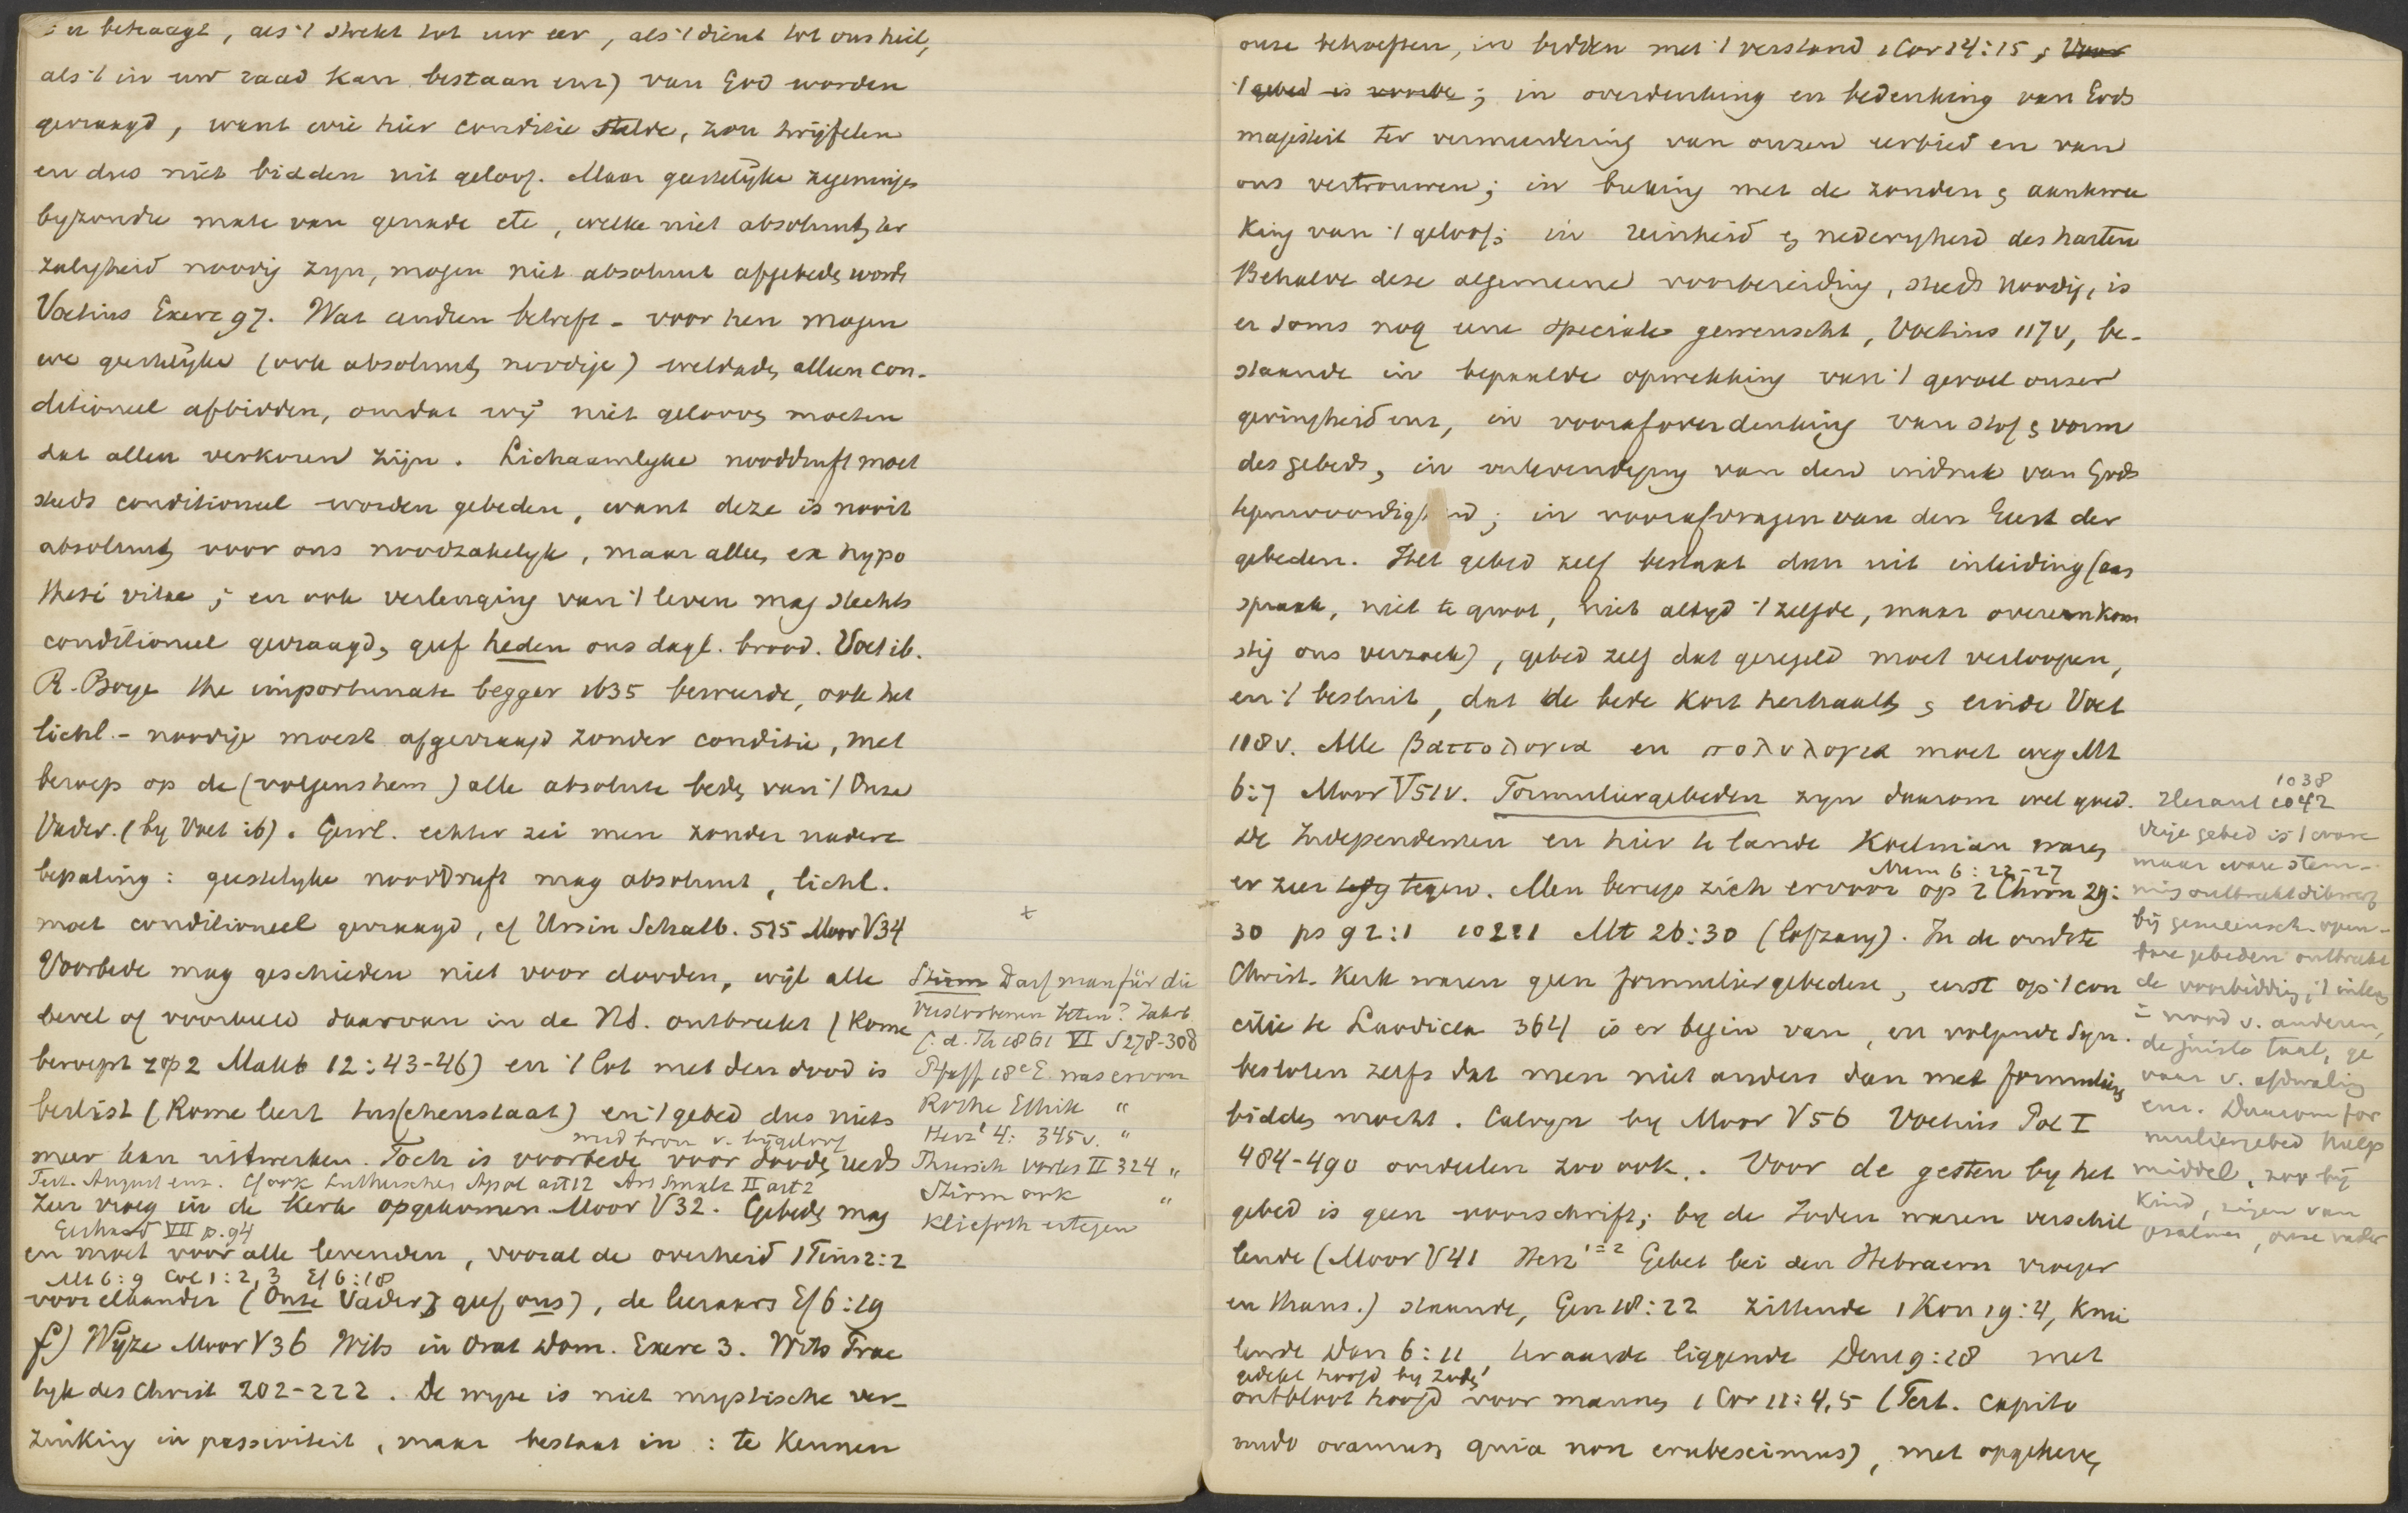 u behaagt, als 't strekt tot uw eer, als 't dient tot ons heil,
als 't in uw raad kan bestaan enz) van God worden
gevraagd, want wie hier conditie stelde, zou twijfelen
en dus niet bidden uit geloof. Maar geestelyke zegeningen
byzondre mate van genade etc, welke niet absoluut ter
zaligheid noodig zyn, mogen niet absoluut afgebeden worde
Voetius Exerc 97. Wat andren betreft - voor hen mogen
we geestelyke (ook absoluut noodige) weldaden alleen con-
ditioneel afbidden, omdat wij niet gelooven moeten
dat allen verkoren zijn. Lichaamlyke nooddruft moet
steeds conditioneel worden gebeden, want deze is nooit
absoluut voor ons noodzakelyk, maar alleen ex hypo
thesi vitae; en ook verlenging van 't leven mag slechts
conditioneel gevraagd, geef heden ons dagl. brood. Voet ib.
R. Boye the importunate begger 1635 beweerde, ook het
lichl.- noodige moest afgevraagd zonder conditie, met
beroep op de (volgens hem) alle absolute beden van 't Onze
Vader. (by Voet ib). Gewl. echter zei men zonder nadere
bepaling: geestelyke nooddruft mag absoluut, lichl.
moet conditioneel gevraagd, cf Ursin Schatb. 515 Moor V 34
Voorbede mag geschieden niet voor dooden, wijl alle
bevel of voorbeeld daarvan in de NT. ontbreekt (Rome
beroept z. op 2 Makk 12:43-46) en 't lot met den dood is
beslist (Rome leert tusschenstaat) en 't gebed dus niets
med bron v. bijgeloof
meer kan uitwerken. Toch is voorbede voor dooden reeds
Tert. August enz. Cf ook Luthersches Apol art 12 Art Smalc II art 2
zeer vroeg in de Kerk opgekomen Moor V 32. Gebeden mag
Gerhard VII p. 94
en moet voor alle levenden, vooral de overheid 1 Tim 2:2
Mt 6:9 Col 1:2,3 Ef 6:18
voor elkander (Onze Vader, geef ons), de leeraars Ef 6:19
f) Wijze Moor V 36 Wits in Orat Dom. Exerc 3. Wits Prac
tyk des Christ 202-222. De wyze is niet mystische ver-
zinking in passiviteit, maar bestaat in: te kennen
+
Stirm Darf man für die
Verstorbenen beten? Jahrb
f. d. Th 1861 VI S 278-308
Pfaff 18e E. was ervoor
Rothe Ethik "
Herz¹ 4: 345 v. "
Thiersch Vorles II 324 "
Stirm ook "
Kliefoth ertegen
onze behoeften, in bidden met 't verstand 1 Cor 14:15; Voor
't gebed is voorbe; in overdenking en bedenking van Gods
majesteit ter vermeerdering van onzen eerbied en van
ons vertrouwen; in breking met de zonden & aankwee
king van 't geloof; in reinheid & nederigheid des harten
Behalve deze algemeene voorbereiding, steeds noodig, is
er soms nog eene speciale gewenscht, Voetius 117 v, be-
staande in bepaalde opwekking van 't gevoel onzer
geringheid enz, in voorafoverdenking van stof & vorm
des gebeds, in verlevendiging van den indruk van Gods
tegenwoordigheid; in voorafvragen van den Geest der
gebeden. Het gebed zelf bestaat dan uit inleiding (aan
spraak, niet te groot, niet altyd 't zelfde, maar overeenkom
stig ons verzoek), gebed zelf dat geregeld moet verloopen,
en 't besluit, dat de bede kort herhaalt & einde Voet
118 v. Alle βαττολογια en πολυλογια moet weg Mt
6:7 Moor V 51 v. Formuliergebeden zyn daarom wel goed.
De Independenten en hier te lande Koelman waren
Num 6:22-27
er zeer tegen. Men beriep zich ervoor op 2 Chron 29:
30 ps 92:1 102:1 Mt 26:30 (lofzang). In de oudste
Christ. Kerk waren geen formuliergebeden, eerst op 't con
cilie te Laodicea 364 is er begin van, en volgende Syn.
besloten zelfs dat men niet anders dan met formulieren
bidden mocht. Calvyn by Moor V 56 Voetius Pol I
484-490 oordeelen zoo ook. Voor de gesten by het
gebed is geen voorschrift; by de Joden waren verschil
lende (Moor V 41 Herz¹⁼² Gebet bei den Hebraern vroeger
en thans.) staande, Gen 18:22 zittende 1 Kon 19:4, knie
lende Dan 6:11, ter aarde liggende Deut 9:18 met
gedekt hoofd by Joden
ontbloot hoofd voor mannen 1 Cor 11:4,5 (Tert. capito
nudo oramus, quia non erubescimus), met opgeheven
1038
Heraut 1042
Vrije gebed is 't ware
maar ware stem-
ming ontbreekt dikwerf
bij gemeensch. open-
bare gebeden ontbreekt
de voorbidding; 't inleven
in nood v. anderen,
de juiste taal, ge
vaar v. afdwaling
enz. Daarom for
muliergebed hulp
middel, zoo bij
kind, zingen van
psalmen, onze vader